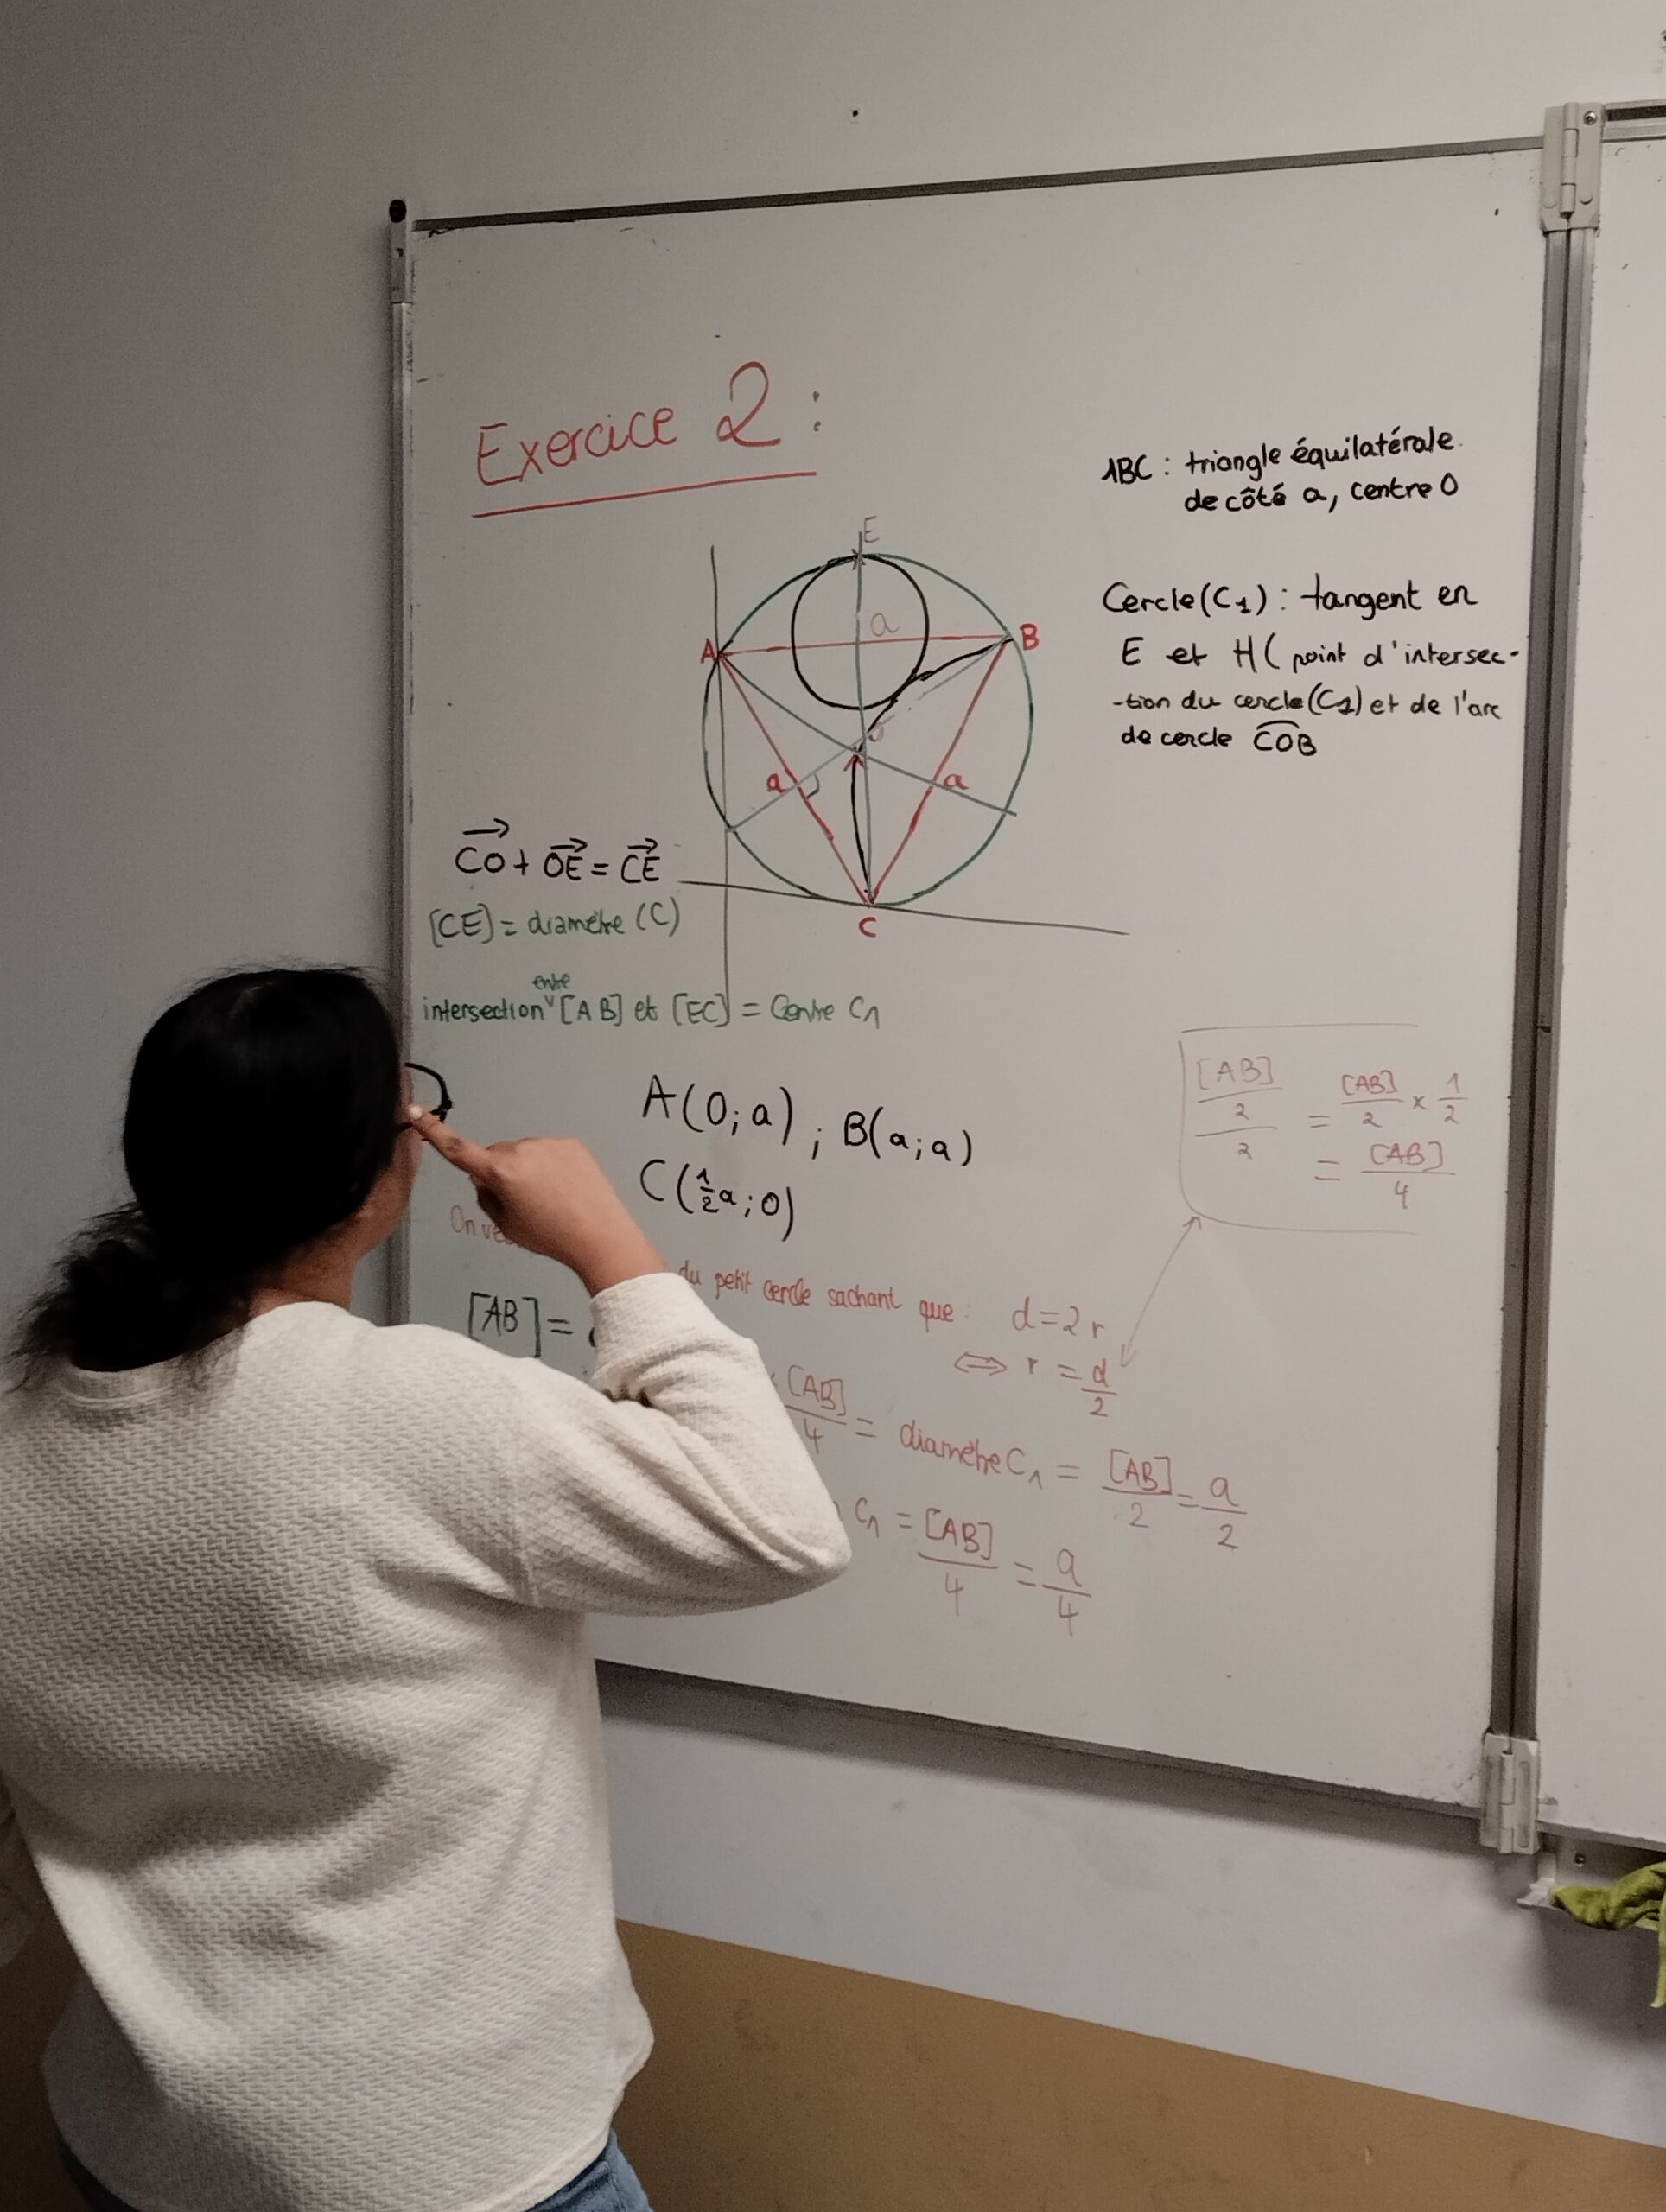 Exercice 2 :
ABC : triangle équilatérale
de côté a, centre O
Cercle (C1) : tangent en
E et H ( point d'intersec-
-tion du cercle (C1) et de l'arc
de cercle COB
E
A
a
B
O
a
a
C
CO + OE = CE
[CE] = diamètre (C)
entre
intersection [AB] et [EC] = Centre C1
A(0; a) ; B(a; a)
C(1/2 a; 0)
[AB]/2/2 = [AB]/2 × 1/2
= [AB]/4
On
du petit cercle sachant que : d = 2r
⇔ r = d/2
[AB] =
[AB]/4 = diamètre C1 = [AB]/2 = a/2
C1 = [AB]/4 = a/4